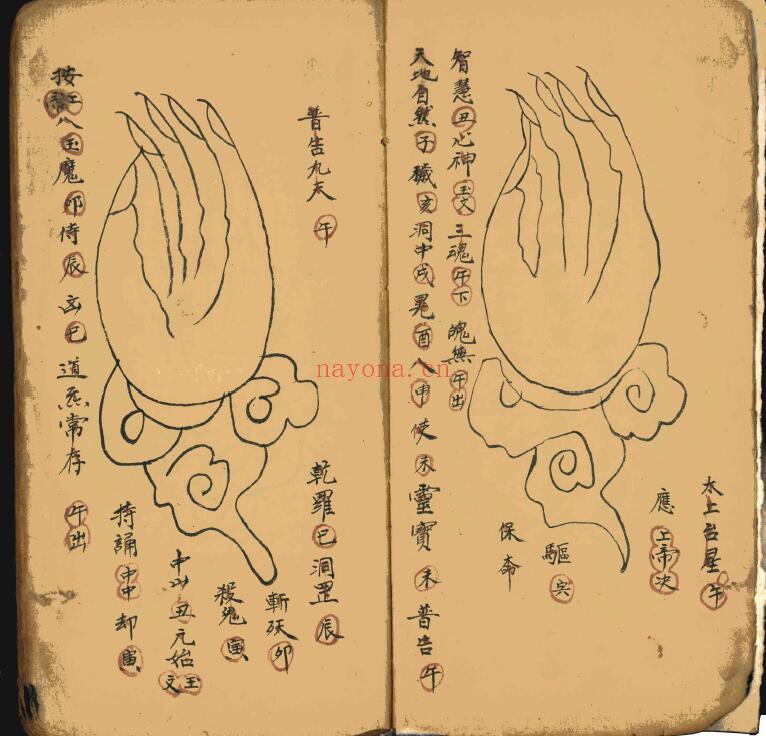 太上台星午
應上帝决
驅
保命
智慧丑心神玉文三魂午下魄無午出
天地自然子穢亥洞中戌晃酉八申使未靈寶未普告午
普告九天午
乾羅巳洞罡辰
斬妖卯
殺鬼寅
中山丑元始玉文
持誦中中却寅
按八玉魔卯侍辰凶巳道炁常存午出
nayona.cn